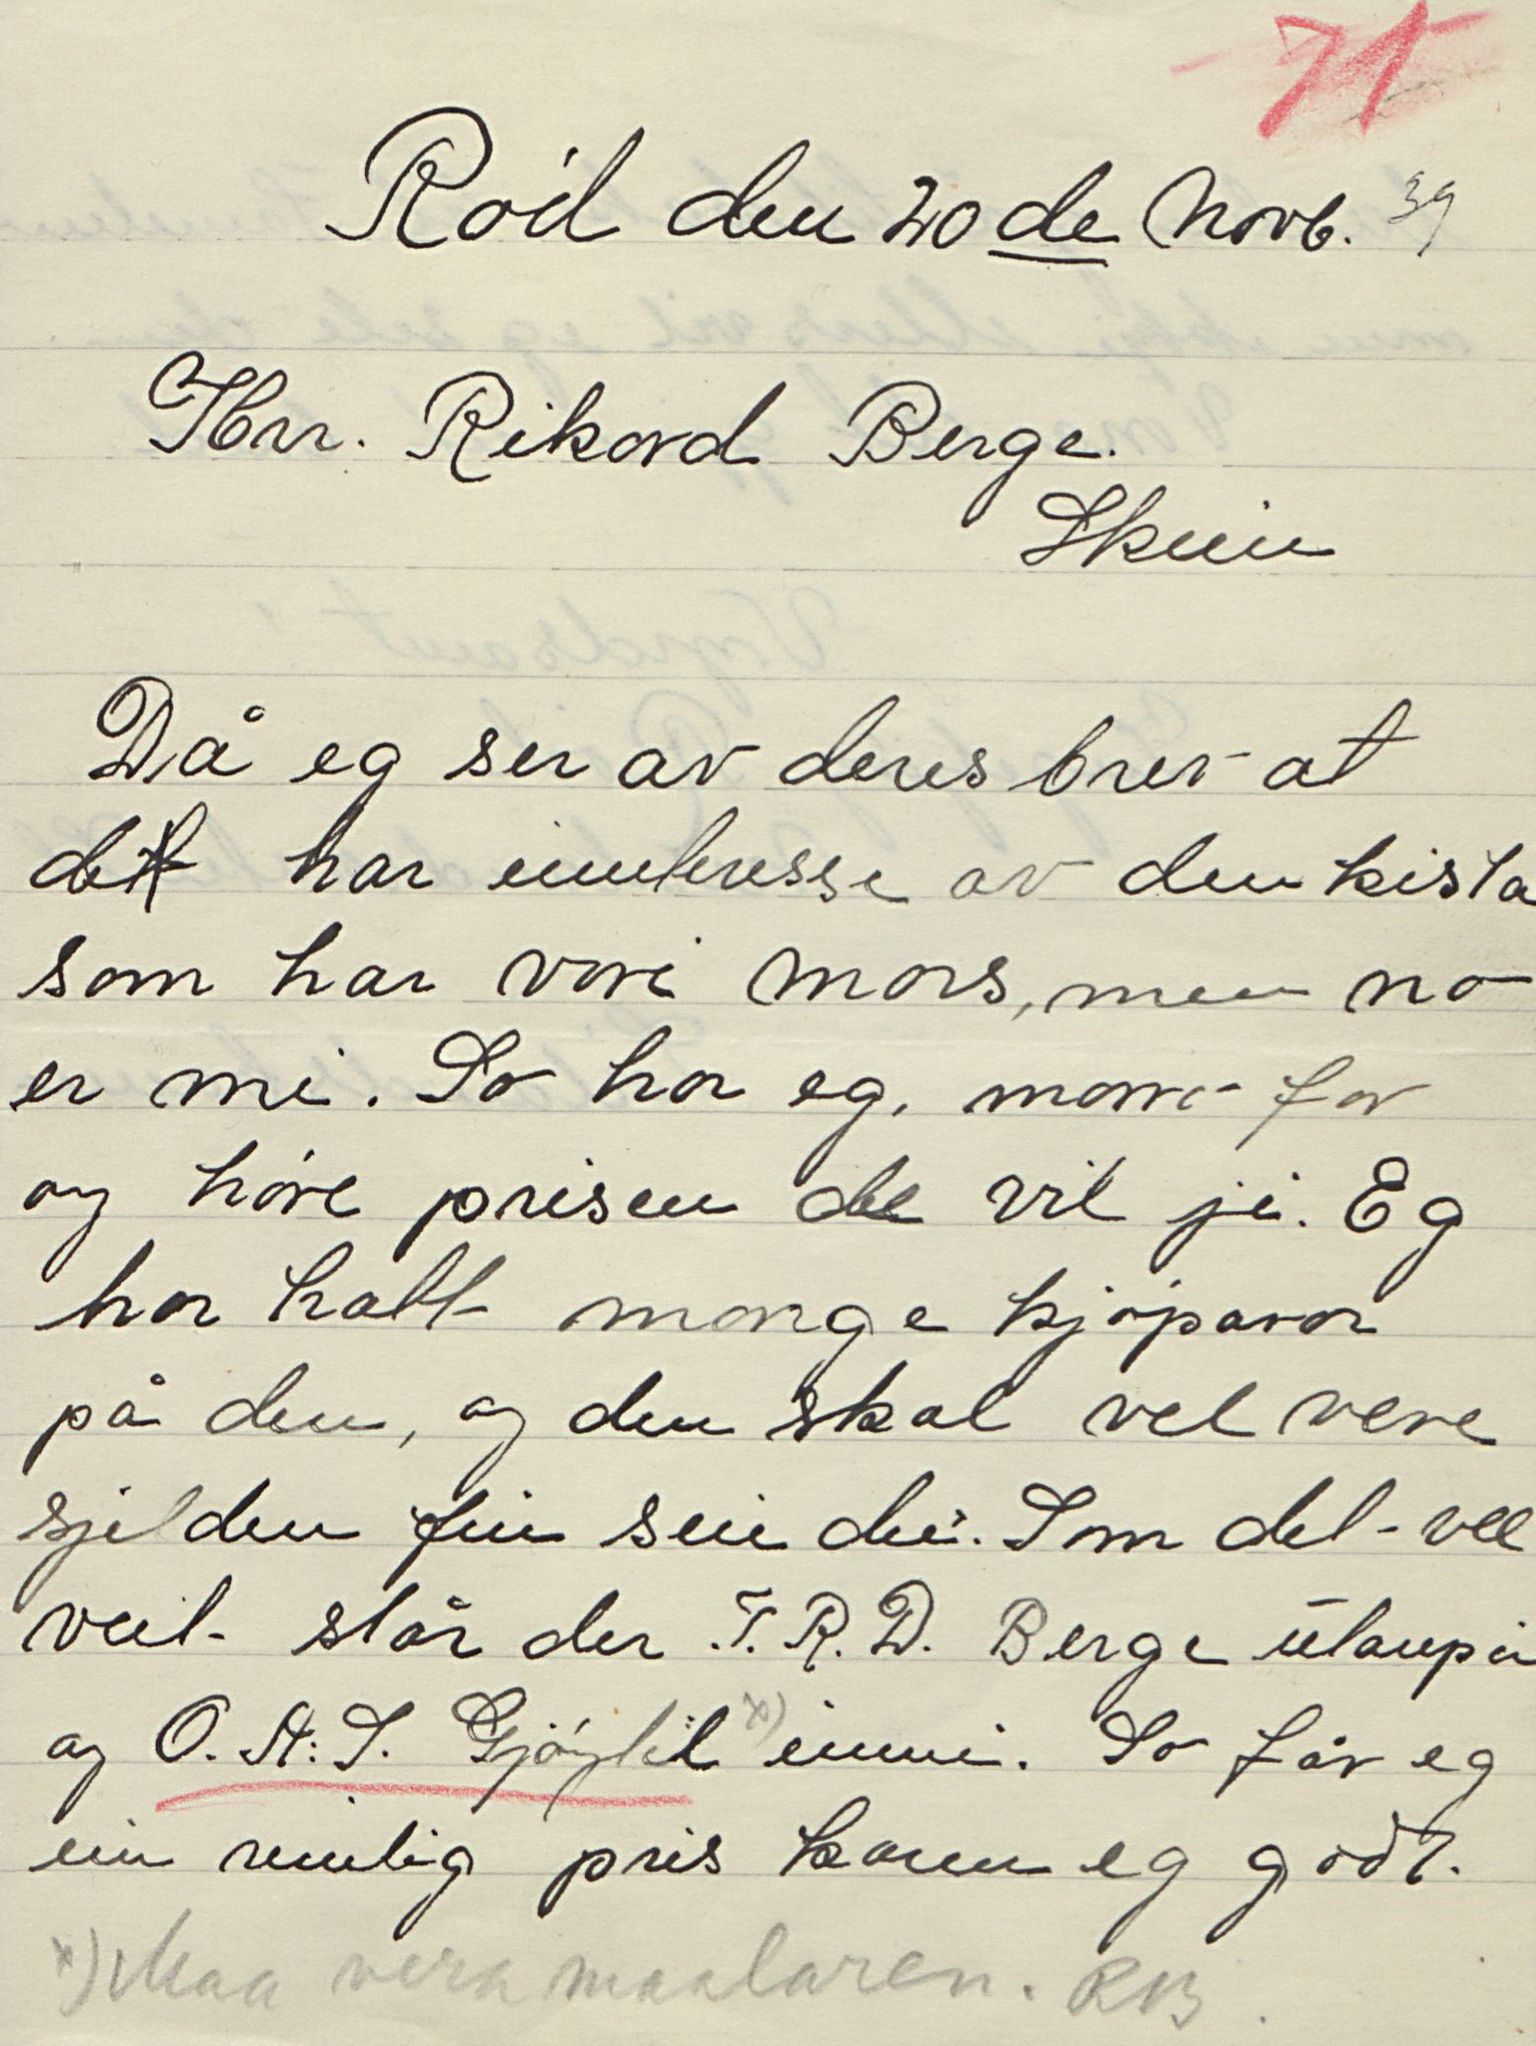 71
Roil den 20de Novb. 39
Hrr. Rikard Berge.
Skien
Då eg ser av deres brev at
det har innteresse av den kista
som har vori mors, men no
er mi. So har eg, moro for
og høre prisen de vil ji. Eg
har hatt mange kjøparar
på den, og den skal vel vere
sjelden fin sein dei. Som det vel
veit står der T. R. D. Berge utanpå
og O. A: S. Gjøytil x) inni. So får eg
ein rimlig pris kann eg godt.
x) Maa vera maalaren. RB.